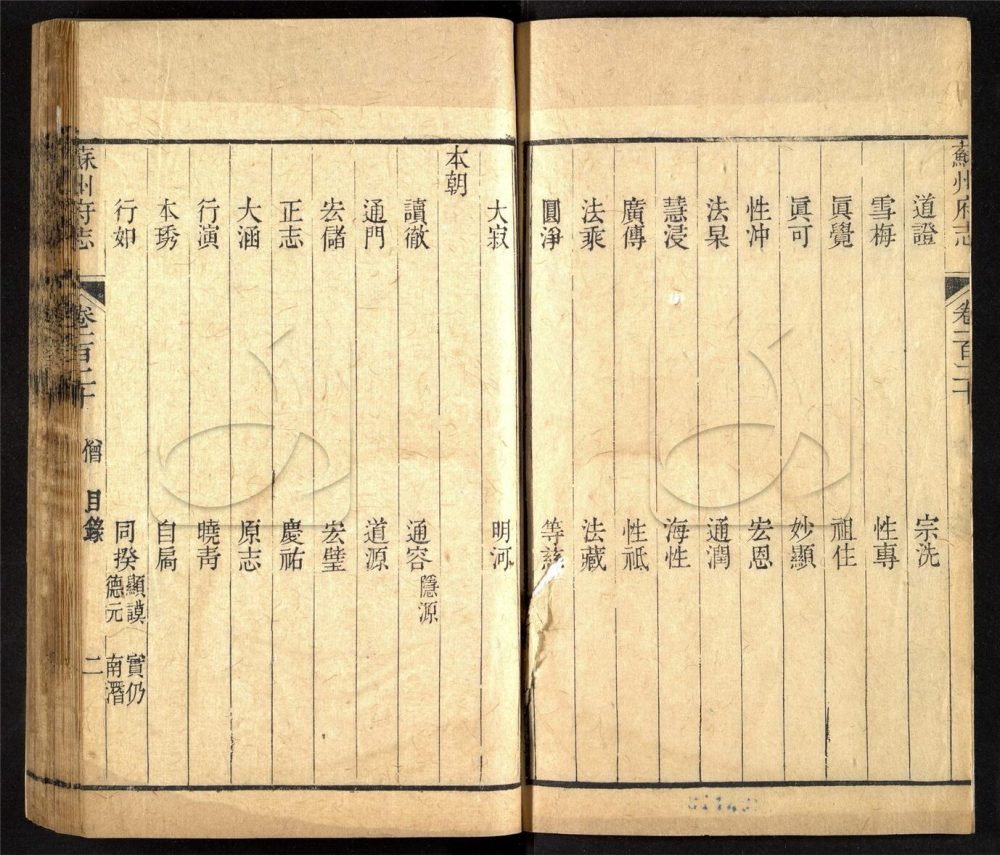 蘇州府志 卷一百二十
道證 宗洗
雪梅 性專
眞覺 祖住
眞可 妙顯
性冲 宏恩
法杲 通潤
慧浸 海性
廣傳 性祇
法乘 法藏
圓淨 等慈
大寂 明河
本朝
讀徹 通容 隱源
通門 道源
宏儲 宏璧
正志 慶祐
大涵 原志
行演 曉靑
本琇 自扃
行如 同揆 顯謨 實仍
德元 南潛
蘇州府志 卷一百二十 僧 目錄 二